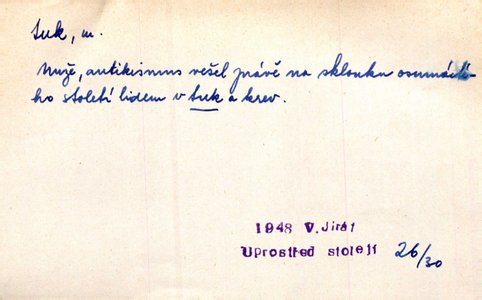 tuk, m.
Nuže, antikismus vešel právě na sklonku osmnácté-
ho století lidem v tuk a krev.
1948 V. Jirát
Uprostřed století 26/30